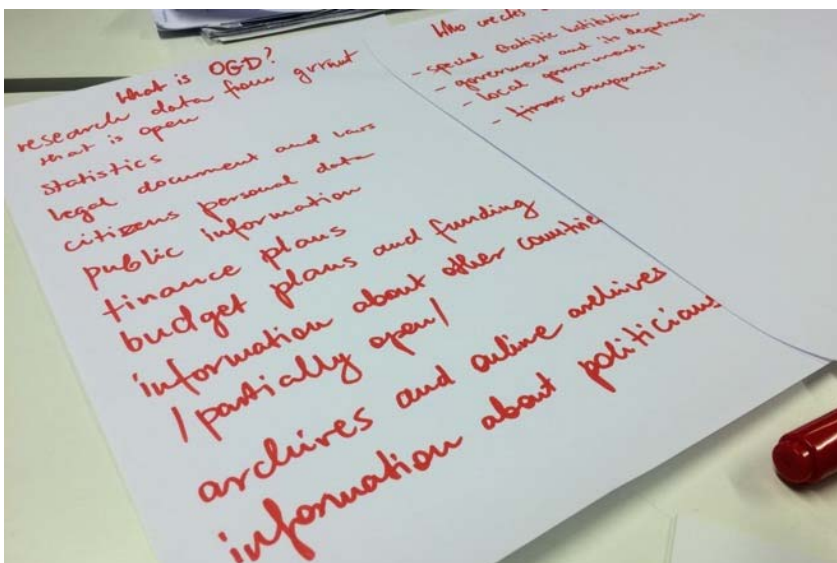 What is OGD?
research data from grrant
that is open
statistics
legal document and laws
citizens personal data
public information
finance plans
budget plans and funding
information about other countrie
/partially open/
archives and online archives
information about politicians
Who
- special Statistic Institution
- government and its departments
- local governments
- firms companies